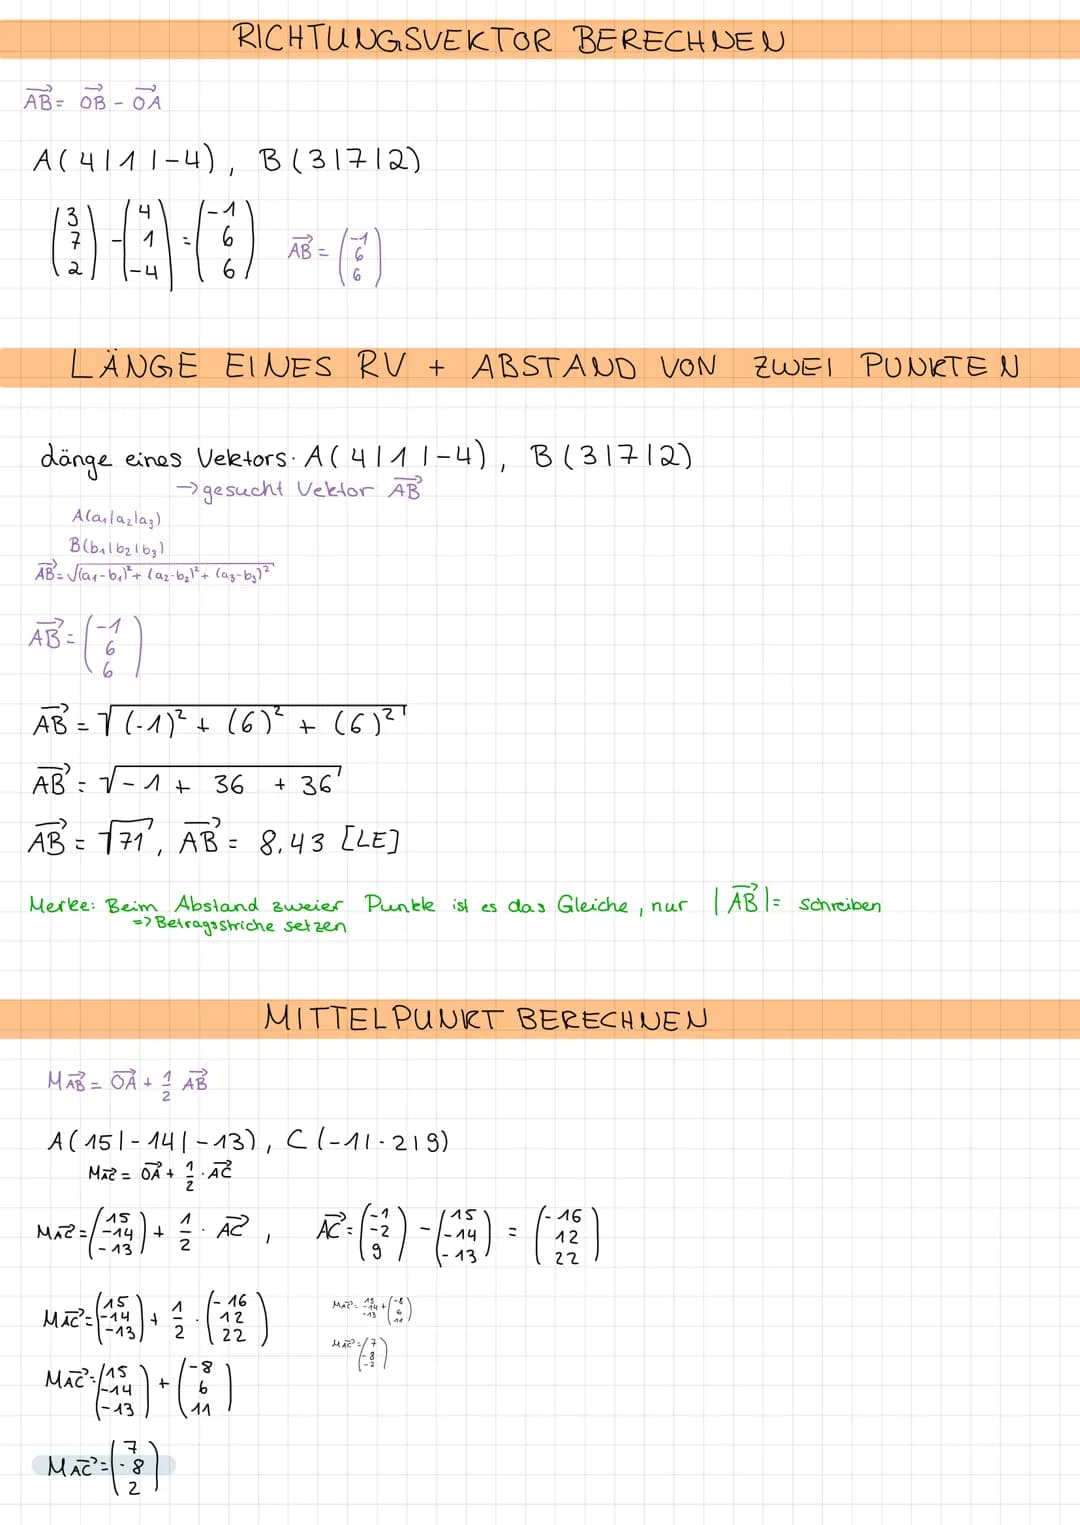 RICHTUNGSVEKTOR BERECHNEN
AB⃗ = OB⃗ - OA⃗
A(4|1|-4), B(3|7|2)
(3 7 2) - (4 1 -4) = (-1 6 6) AB⃗ = (-1 6 6)
LÄNGE EINES RV + ABSTAND VON ZWEI PUNKTEN
Länge eines Vektors: A(4|1|-4), B(3|7|2)
→ gesucht Vektor AB⃗
A(a₁|a₂|a₃)
B(b₁|b₂|b₃)
AB⃗ = √(a₁-b₁)² + (a₂-b₂)² + (a₃-b₃)²
AB⃗ = (-1 6 6)
AB⃗ = √(-1)² + (6)² + (6)²
AB⃗ = √-1 + 36 + 36
AB⃗ = √71, AB⃗ = 8,43 [LE]
Merke: Beim Abstand zweier Punkte ist es das Gleiche, nur |AB⃗| = schreiben
=> Betragsstriche setzen
MITTELPUNKT BERECHNEN
MAB⃗ = OA⃗ + 1/2 AB⃗
A(15|-14|-13), C(-1|-2|9)
MAC⃗ = OA⃗ + 1/2 · AC⃗
MAC⃗ = (15 -14 -13) + 1/2 · AC⃗, AC⃗ = (-1 -2 9) - (15 -14 -13) = (-16 12 22)
MAC⃗ = (15 -14 -13) + 1/2 · (-16 12 22)
MAC⃗ = 15 -14 -13 + (-8 6 11)
MAC⃗ = (7 -8 -2)
MAC⃗ = (15 -14 -13) + (-8 6 11)
MAC⃗ = (7 -8 2)